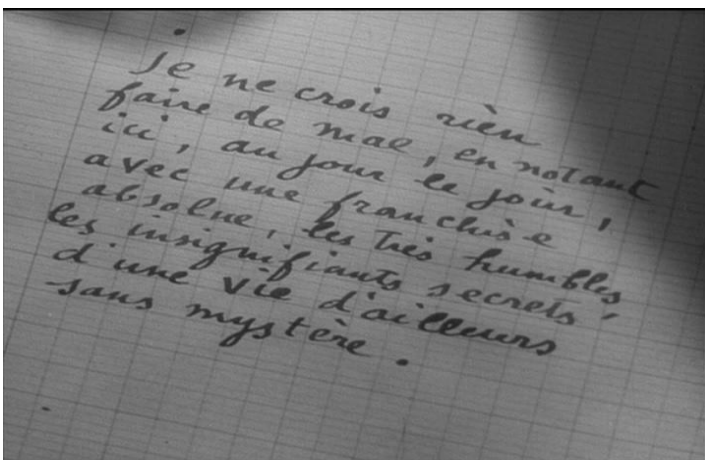 Je ne crois rien
faire de mal, en notant
ici, au jour le jour,
avec une franchise
absolue, les très humbles
les insignifiants secrets,
d'une vie d'ailleurs
sans mystère.